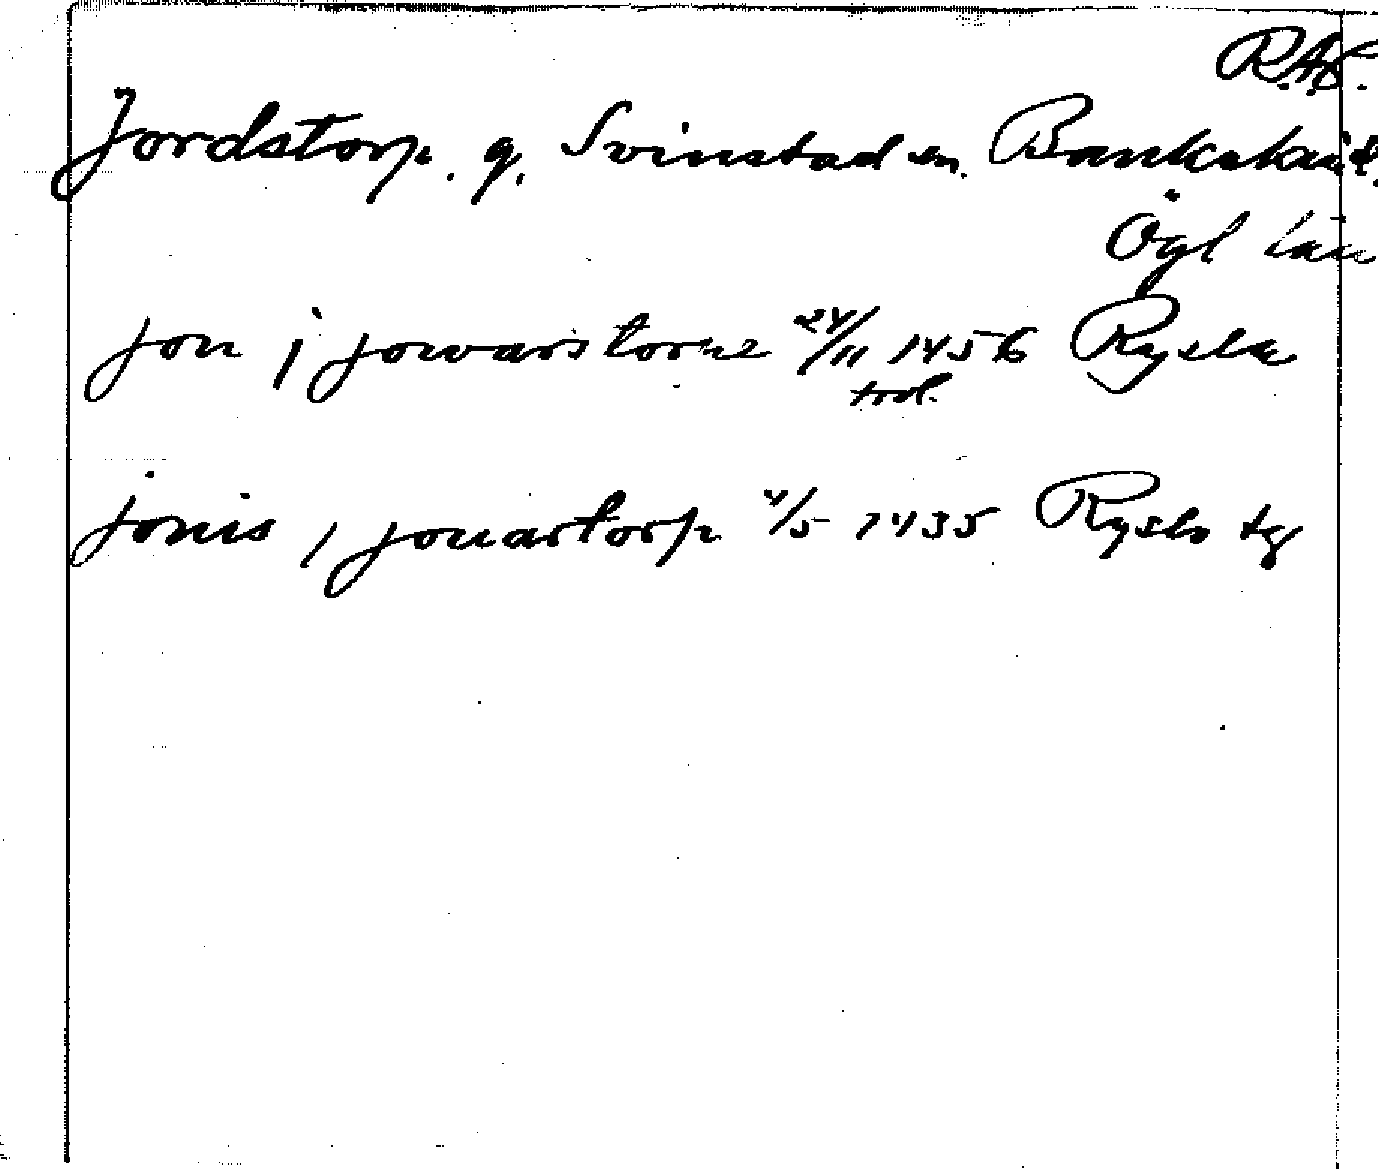 R.A.P.
Jordstorp. g. Svinstad sn. Bankekind.
Ögl län
jon j jowarstorpe 24/11 1456 Rysela
trol.
jonis j jouartorp 4/5 1435 Ryssbo tg